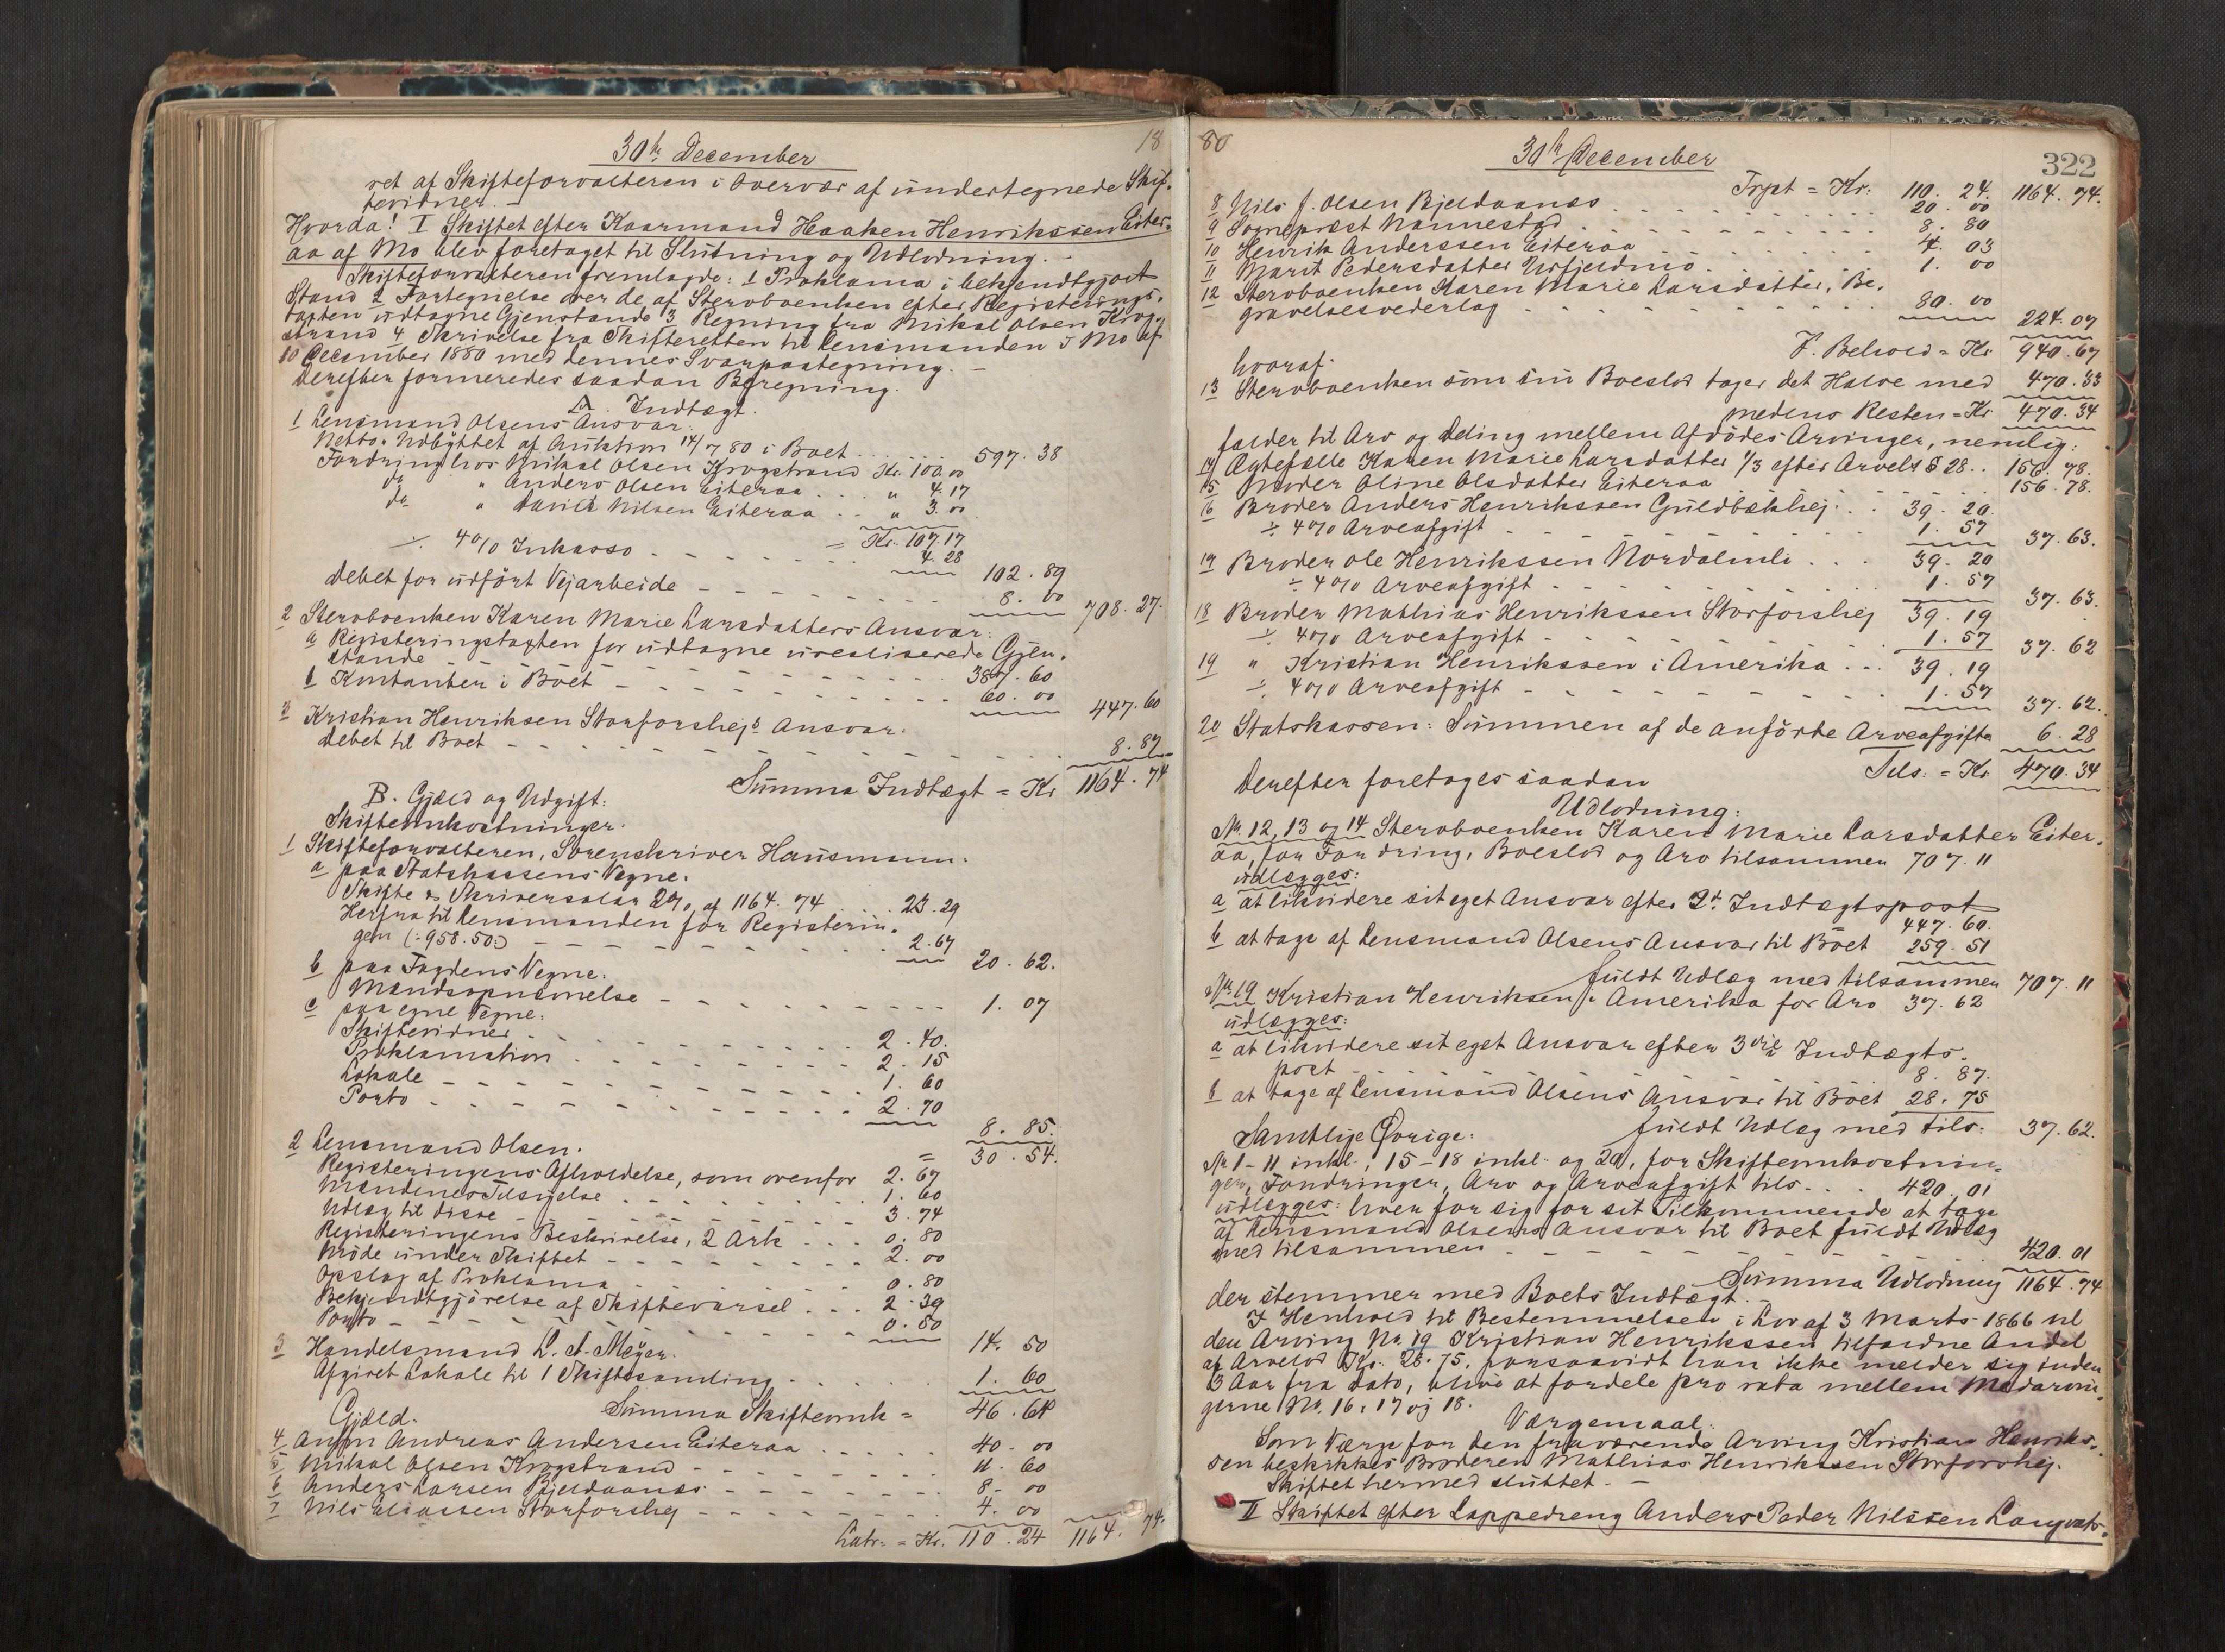 30te December
18
ret af Skifteforvalteren i Overvær af undertegnede Skif-
tevidner. —
Hvorda! I Skiftet efter Kaarmand Haaken Henrikssen Eiter-
aa af Mo blev foretaget til Slutning og Udlodning. —
Skifteforvalteren fremlagde: 1 Proklama i bekjendtgjort
Stand 2 Fortegnelse over de af Stervboenken efter Registerings-
taxten udtagne Gjenstande 3 Regning fra Mikal Olsen Krog-
strand 4 Skrivelse fra Skifteretten til Lensmanden i Mo af
10 December 1880 med dennes Svarpaategning. —
Derefter formeredes saadan Beregning.
A. Indtægt.
1 Lensmand Olsens Ansvar:
Netto-Udbyttet af Auktion 14/7 80 i Boet . . . 597. 38
Fordring hos Mikal Olsen Krogstrand Kr. 100.00
do " Anders Olsen Eiteraa . . . " 4.17
do " David Nilsen Eiteraa . . " 3.00
= Kr. 107.17
÷ 4 % Inkasso - - - - 4.28
102. 89
Debet for udført Vejarbeide - - - - 8. 00
708. 27.
2 Stervboenken Karen Marie Larsdatters Ansvar:
a Registeringstaxten for udtagne urealiserede Gjen-
stande - - - - 387. 60
b Kontanter i Boet - - - - 60. 00
447. 60
3 Kristian Henriksen Storforshejs Ansvar.
Debet til Boet - - - - 8. 87
Summa Indtægt = Kr 1164. 74
B. Gjæld og Udgift:
Skifteomkostninger.
1 Skifteforvalteren, Sorenskriver Hausmann:
a paa Statskassens Vegne.
Skifte & Skriversalær 2 % af 1164. 74 . . 23. 29
Herfra til Lensmanden for Registerin-
gen (:958.50:) - - - - 2. 67
20. 62.
b paa Fogdens Vegne:
Mandsopnævnelse - - - - 1. 07
c paa egne Vegne:
Skiftevidner - - - - 2. 40.
Proklamation - - - - 2. 15
Lokale - - - - 1. 60
Porto - - - - 2. 70
8. 85.
= 30. 54.
2 Lensmand Olsen.
Registeringens Afholdelse, som ovenfor 2. 67
Mændenes Tilsigelse - - - - 1. 60
Udlæg til disse - - - - 3. 74
Registeringens Beskrivelse, 2 Ark . . . 0. 80
Møde under Skiftet - - - - 2. 00
Opslag af Proklama - - - - 0. 80
Bekjendtgjörelse af Skiftevarsel . . . 2. 39
Porto - - - - 0. 50
14. 50
3 Handelsmand L. A. Meyer.
Afgivet Lokale til 1 Skiftesamling . . . 1. 60
Summa Skifteomk = 46. 64
Gjæld.
4 Anton Andreas Andersen Eiteraa . . . 40. 00
5 Mikal Olsen Krogstrand - - - - 11. 60
6 Anders Larsen Bjeldaanæs - - - - 8. 00
7 Nils Eliassen Storforshej - - - - 4. 00
Latr. = Kr. 110. 24 1164. 74.
80
30te December
322
Trpt = Kr: 110. 24. 1164. 74.
8 Nils J. Olsen Bjeldaanæs . . . 20. 00
9 Sogneprest Nannestad . . . 8. 80
10 Henrik Anderssen Eiteraa . . . 4. 03
11 Marit Pedersdatter Urfjeldmo . . . 1. 00
12 Stervboenken Karen Marie Larsdatter, Be-
gravelsesvederlag - - - - 80. 00
224. 07
F. Behold = Kr 940. 67
hvoraf:
13 Stervboenken som sin Boeslod tager det Halve med 470. 33
medens Resten = Kr 470. 34
falder til Arv og Deling mellem Afdödes Arvinger, nemlig:
14 Ægtefælle Karen Marie Larsdatter 1/3 efter Arvels § 28 . . 156. 78.
15 Moder Oline Olsdatter Eiteraa . . . 156. 78.
16 Broder Anders Henrikssen Guldbækhej . . . 39. 20.
÷ 4 % Arveafgift - - - - 1. 57
37. 63.
17 Broder Ole Henrikssen Nordalmli . . . 39. 20
÷ 4 % Arveafgift - - - - 1. 57
37. 63.
18 Broder Mathias Henrikssen Storforshej 39. 19
÷ 4 % Arveafgift - - - - 1. 57
37. 62
19 " Kristian Henrikssen i Amerika . . . 39. 19
÷ 4 % Arveafgift - - - - 1. 57
37. 62.
20 Statskassen: Summen af de anførte Arveafgifter 6. 28
Tils. = Kr. 470. 34
Derefter foretoges saadan
Udlodning:
No. 12, 13 og 14 Stervboenken Karen Marie Larsdatter Eiter-
aa, for Fordring, Boeslod og Arv tilsammen 707. 11
udlægges:
a at likvidere sit eget Ansvar efter 2d Indtægtspost
447. 60.
b at tage af Lensmand Olsens Ansvar til Boet 259. 51
fuldt Udlæg med tilsammen 707. 11
No. 19 Kristian Henriksen i Amerika for Arv 37. 62
udlægges:
a at likvidere sit eget Ansvar efter 3die Indtægts-
post - - - - 8. 87.
b at tage af Lensmand Olsens Ansvar til Boet 28. 75
fuldt Udlæg med tils. 37. 62.
Samtlige Øvrige:
No 1 – 11 inkl., 15 – 18 inkl. og 20, for Skifteomkostnin-
ger, Fordringer, Arv og Arveafgift tils. . . 420. 01
udlægges: hver for sig for sit Tilkommende at tage
af Lensmand Olsens Ansvar til Boet fuldt Udlæg
med tilsammen - - - - 420. 01
Summa Udlodning 1164. 74
der stemmer med Boets Indtægt. —
I Henhold til Bestemmelsen i Lov af 3 Marts 1866 vil
den Arving No. 19 Kristian Henrikssen tilfaldne Andel
af Arvelod Kr. 28. 75, forsaavidt han ikke melder sig inden
3 Aar fra dato, blive at fordele pro rata mellem Medarvin-
gerne No. 16, 17 og 18.
Værgemaal:
Som Værge for den fraværende Arving Kristian Henriks-
sen beskikkes Broderen Mathias Henrikssen Storforshej.
Skiftet hermed sluttet. —
II Skiftet efter Lappedreng Anders Peder Nilssen Langvatn-